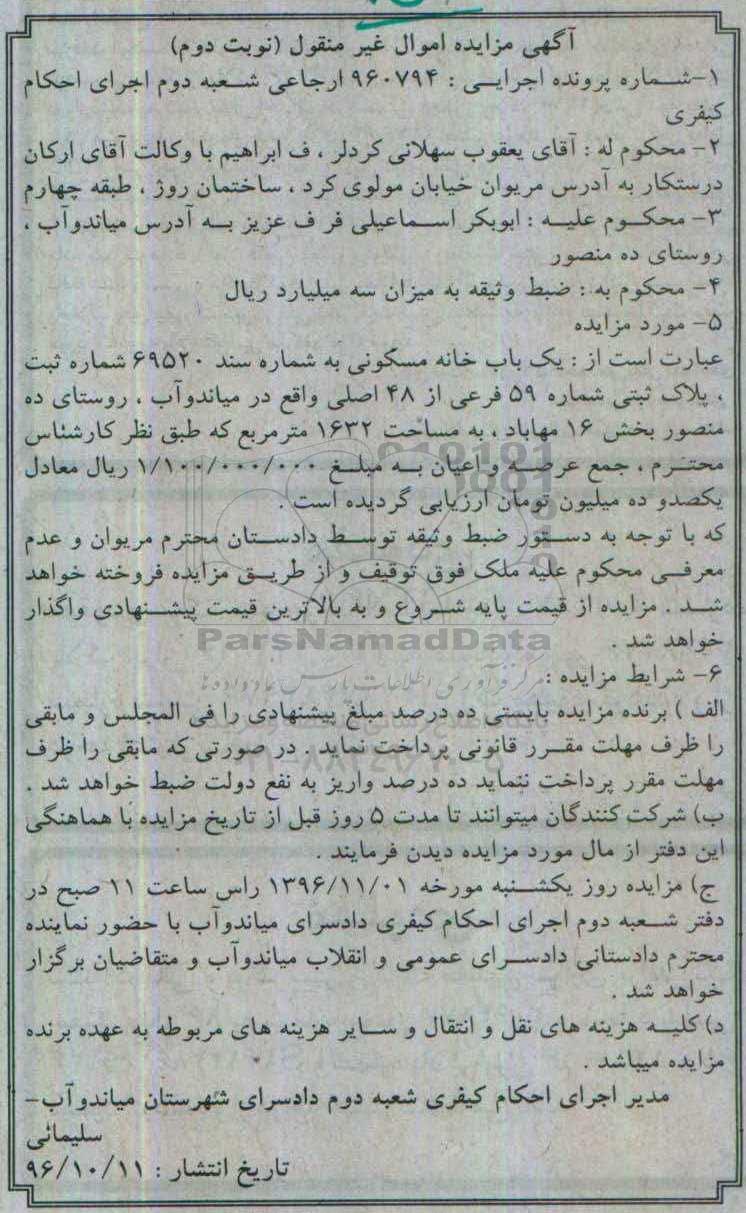 آگهی مزایده اموال غیر منقول (نوبت دوم)
۱-شماره پرونده اجرایی : ۹۶۰۷۹۴ ارجاعی شعبه دوم اجرای احکام
کیفری
۲- محکوم له : آقای یعقوب سهلانی کردلر ، ف ابراهیم با وکالت آقای ارکان
درستکار به آدرس مریوان خیابان مولوی کرد ، ساختمان روژ ، طبقه چهارم
۳- محکوم علیه : ابوبکر اسماعیلی فر ف عزیز به آدرس میاندوآب ،
روستای ده منصور
۴- محکوم به : ضبط وثیقه به میزان سه میلیارد ریال
۵- مورد مزایده
عبارت است از : یک باب خانه مسکونی به شماره سند ۶۹۵۲۰ شماره ثبت
، پلاک ثبتی شماره ۵۹ فرعی از ۴۸ اصلی واقع در میاندوآب ، روستای ده
منصور بخش ۱۶ مهاباد ، به مساحت ۱۶۳۲ مترمربع که طبق نظر کارشناس
محترم ، جمع عرصه و اعیان به مبلغ ۱/۱۰۰/۰۰۰/۰۰۰ ریال معادل
یکصدو ده میلیون تومان ارزیابی گردیده است .
که با توجه به دستور ضبط وثیقه توسط دادستان محترم مریوان و عدم
معرفی محکوم علیه ملک فوق توقیف و از طریق مزایده فروخته خواهد
شد . مزایده از قیمت پایه شروع و به بالاترین قیمت پیشنهادی واگذار
خواهد شد .
ParsNamadData
۶- شرایط مزایده :
مرکز فرآوری اطلاعات پارس نماد داده ها
الف ) برنده مزایده بایستی ده درصد مبلغ پیشنهادی را فی المجلس و مابقی
را ظرف مهلت مقرر قانونی پرداخت نماید . در صورتی که مابقی را ظرف
مهلت مقرر پرداخت ننماید ده درصد واریز به نفع دولت ضبط خواهد شد .
ب) شرکت کنندگان میتوانند تا مدت ۵ روز قبل از تاریخ مزایده با هماهنگی
این دفتر از مال مورد مزایده دیدن فرمایند .
ج) مزایده روز یکشنبه مورخه ۱۳۹۶/۱۱/۰۱ راس ساعت ۱۱ صبح در
دفتر شعبه دوم اجرای احکام کیفری دادسرای میاندوآب با حضور نماینده
محترم دادستانی دادسرای عمومی و انقلاب میاندوآب و متقاضیان برگزار
خواهد شد .
د) کلیه هزینه های نقل و انتقال و سایر هزینه های مربوطه به عهده برنده
مزایده میباشد .
مدیر اجرای احکام کیفری شعبه دوم دادسرای شهرستان میاندوآب-
سلیمانی
تاریخ انتشار : ۹۶/۱۰/۱۱